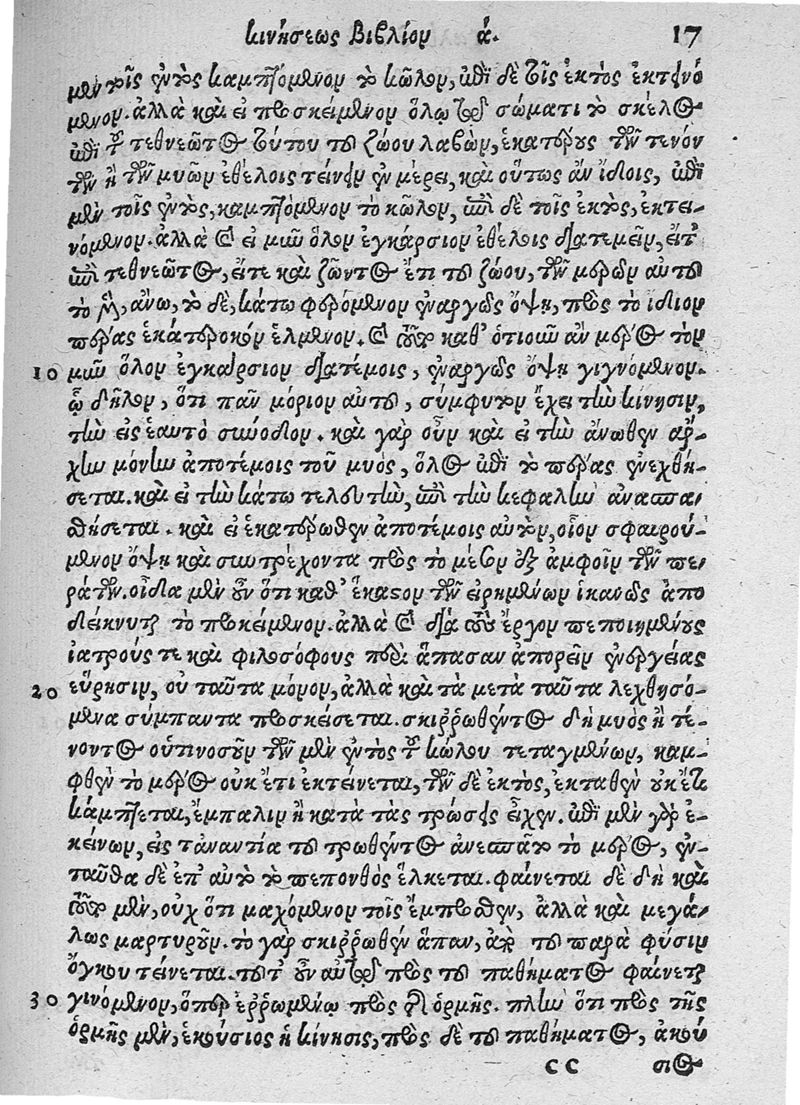 κινήσεως Βιβλίον ά. 17
μὲν τοῖς ἐντὸς καμπτόμενον τὸ κῶλον, ἐπὶ δὲ τοῖς ἐκτὸς ἐκτεινό
μενον. ἀλλὰ καὶ εἰ προσκείμενον ὅλῳ τῷ σώματι τὸ σκέλος
ἐπὶ τοῦ τεθνεῶτος τούτου τοῦ ζώου λαβὼν, ἑκατέρους τῶν τενόν
των ἢ τῶν μυῶν ἐθέλοις τείνειν ἐν μέρει, καὶ οὕτως ἂν ἴδοις, ἐπὶ
μὲν τοῖς ἐντὸς, καμπτόμενον τὸ κῶλον, ἐπὶ δὲ τοῖς ἐκτὸς, ἐκτει-
νόμενον. ἀλλὰ καὶ εἰ μῦν ὅλον ἐγκάρσιον ἐθέλοις διατεμεῖν, εἴτ'
ἐπὶ τεθνεῶτος, εἴτε καὶ ζῶντος ἔτι τοῦ ζώου, τῶν μερῶν αὐτοῦ
τὸ μὲν, ἄνω, τὸ δὲ, κάτω φερόμενον ἐναργῶς ὄψῃ, πρὸς τὸ ἴδιον
πέρας ἑκάτερον ἑλκόμενον. καὶ τοῦτο καθ' ὁτιοῦν ἂν μέρος τὸν
10 μῦν ὅλον ἐγκάρσιον διατέμοις, ἐναργῶς ὄψῃ γιγνόμενον.
ᾧ δῆλον, ὅτι πᾶν μόριον αὐτοῦ, σύμφυτον ἔχει τὴν κίνησιν,
τὴν εἰς ἑαυτὸ σύνοδον. καὶ γὰρ οὖν καὶ εἰ τὴν ἄνωθεν ἀρ-
χὴν μόνην ἀποτέμοις τοῦ μυὸς, ὅλος ἐπὶ τὸ πέρας ἐνεχθή-
σεται. καὶ εἰ τὴν κάτω τελευτὴν, ἐπὶ τὴν κεφαλὴν ἀνασπα-
σθήσεται. καὶ εἰ ἑκατέρωθεν ἀποτέμοις αὐτὸν, οἷον σφαιρού-
μενον ὄψῃ καὶ συντρέχοντα πρὸς τὸ μέσον ἐξ ἀμφοῖν τῶν πε-
ράτων. οἶδα μὲν οὖν ὅτι καθ' ἕκαστον τῶν εἰρημένων ἱκανῶς ἀπο
δείκνυται τὸ προκείμενον. ἀλλὰ καὶ διὰ τοὺς ἔργον πεποιημένους
ἰατρούς τε καὶ φιλοσόφους περὶ ἅπασαν ἀπορεῖν ἐνεργείας
20 εὕρησιν, οὐ ταῦτα μόνον, ἀλλὰ καὶ τὰ μετὰ ταῦτα λεχθησό-
μενα σύμπαντα προσκείσεται. σκιῤῥωθέντος δὴ μυὸς ἢ τέ-
νοντος οὑτινοσοῦν τῶν μὲν ἐντὸς τοῦ κώλου τεταγμένων, καμ-
φθὲν τὸ μέρος οὐκ ἔτι ἐκτείνεται, τῶν δὲ ἐκτὸς, ἐκταθὲν οὐκ ἔτι
κάμπτεται, ἔμπαλιν ἢ κατὰ τὰς τρώσεις εἶχεν. ἐπὶ μὲν γὰρ ἐ-
κείνων, εἰς τἀναντία τοῦ τρωθέντος ἀνεσπᾶτο τὸ μέρος, ἐν-
ταῦθα δὲ ἐπ' αὐτὸ τὸ πεπονθὸς ἕλκεται. φαίνεται δὲ δὴ καὶ
τοῦτο μὲν, οὐχ ὅτι μαχόμενον τοῖς ἔμπροσθεν, ἀλλὰ καὶ μεγά-
λως μαρτυροῦν. τὸ γὰρ σκιῤῥωθὲν ἅπαν, ὑπὸ τοῦ παρὰ φύσιν
ὄγκου τείνεται. τοῦτ' οὖν αὐτῷ πρὸς τοῦ παθήματος φαίνεται
30 γινόμενον, ὅπερ ἐῤῥωμένῳ πρὸς τῆς ὁρμῆς. πλὴν ὅτι πρὸς τῆς
ὁρμῆς μὲν, ἑκούσιος ἡ κίνησις, πρὸς δὲ τοῦ παθήματος, ἀκού
CC σιος